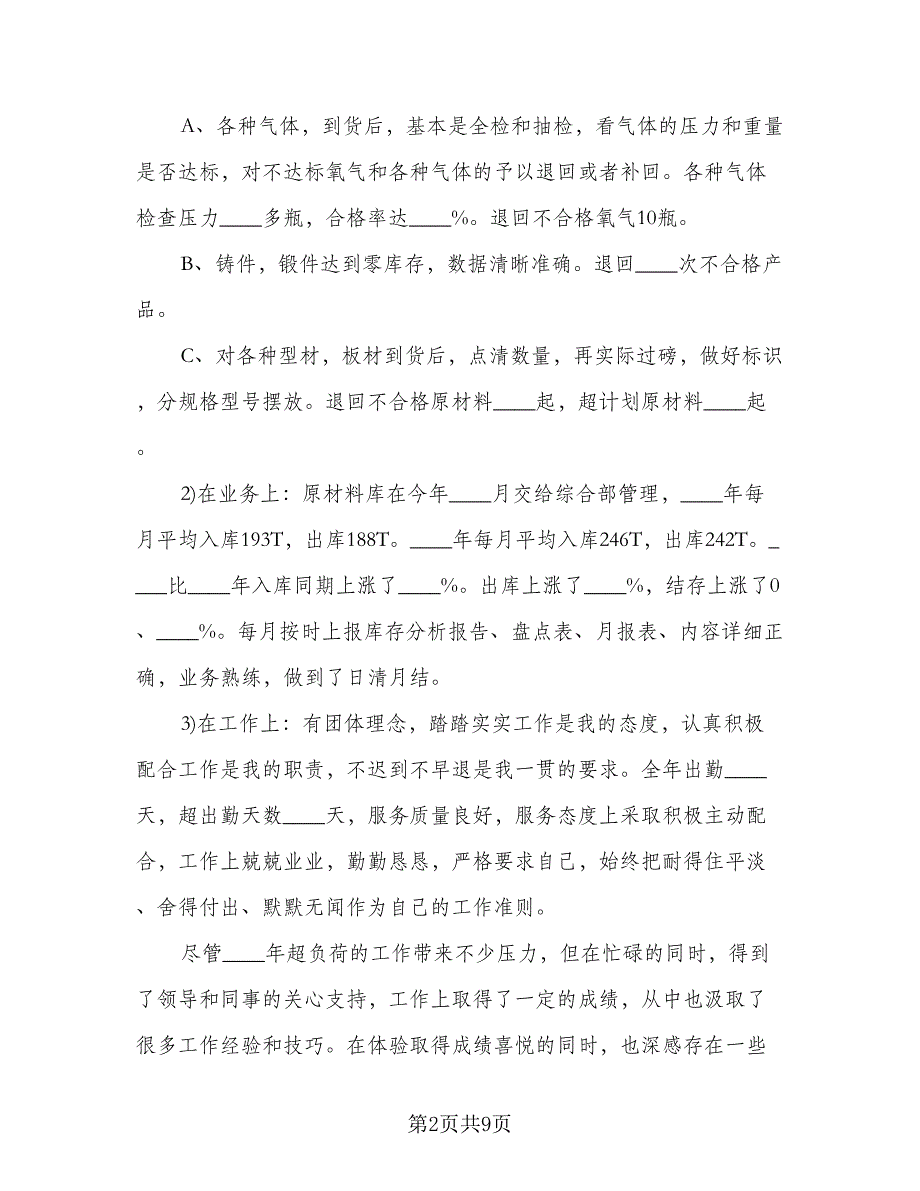 A、各种气体，到货后，基本是全检和抽检，看气体的压力和重量
是否达标，对不达标氧气和各种气体的予以退回或者补回。各种气体
检查压力____多瓶，合格率达____%。退回不合格氧气10瓶。
B、铸件，锻件达到零库存，数据清晰准确。退回____次不合格产
品。
C、对各种型材，板材到货后，点清数量，再实际过磅，做好标识
，分规格型号摆放。退回不合格原材料____起，超计划原材料____起
。
2)在业务上：原材料库在今年____月交给综合部管理，____年每
月平均入库193T，出库188T。____年每月平均入库246T，出库242T。_
___比____年入库同期上涨了____%。出库上涨了____%，结存上涨了0
、____%。每月按时上报库存分析报告、盘点表、月报表、内容详细正
确，业务熟练，做到了日清月结。
3)在工作上：有团体理念，踏踏实实工作是我的态度，认真积极
配合工作是我的职责，不迟到不早退是我一贯的要求。全年出勤____
天，超出勤天数____天，服务质量良好，服务态度上采取积极主动配
合，工作上兢兢业业，勤勤恳恳，严格要求自己，始终把耐得住平淡
、舍得付出、默默无闻作为自己的工作准则。
尽管____年超负荷的工作带来不少压力，但在忙碌的同时，得到
了领导和同事的关心支持，工作上取得了一定的成绩，从中也汲取了
很多工作经验和技巧。在体验取得成绩喜悦的同时，也深感存在一些
第2页共9页